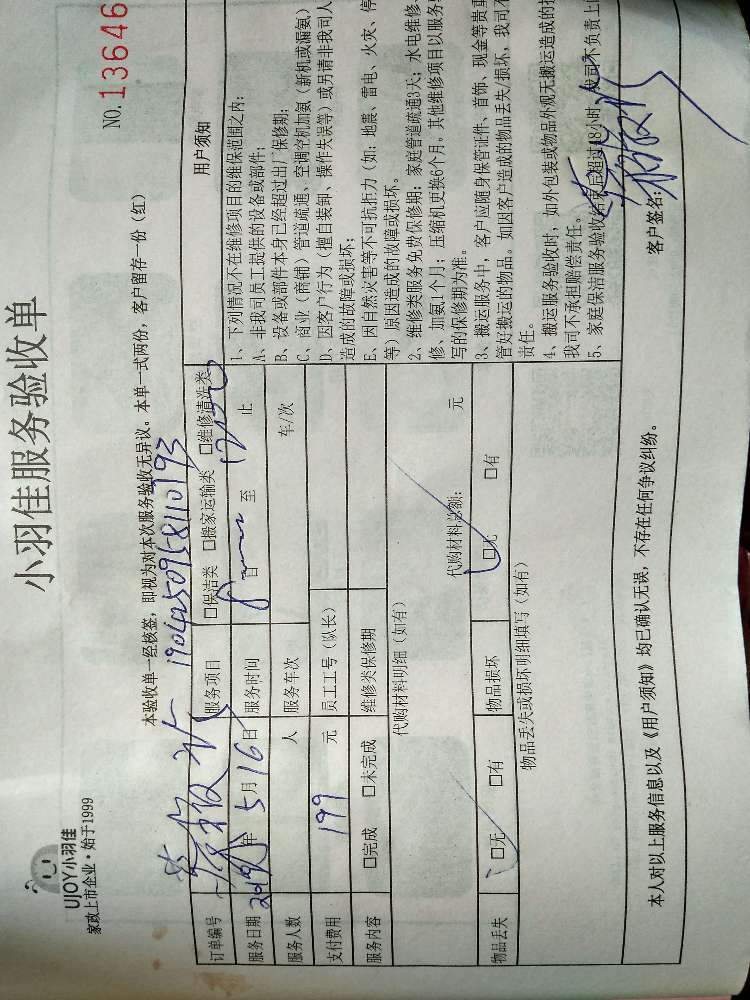 UJOY小羽佳
家政上市企业·始于1999
小羽佳服务验收单
NO.13646
本验收单一经核签，即视为对本次服务验收无异议。本单一式两份，客户留存一份（红）
19042509581110193
订单编号
服务项目 □保洁类 □搬家运输类 □维修清洗类
服务日期 2019年5月16日
服务时间 8 日 至 止
服务人数 人
服务车次 车/次
支付费用 199 元
员工工号（队长）
服务内容 □完成 □未完成
维修类保修期
代购材料明细（如有）
代购材料总额： 元
物品丢失 □无 □有
物品损坏 □无 □有
物品丢失或损坏明细填写（如有）
用户须知
1、下列情况不在维修项目的维保范围之内：
A、非我司员工提供的设备或部件；
B、设备或部件本身已经超过出厂保修期；
C、商业（商铺）管道疏通、空调空机加氨（新机或漏氨）
D、因客户行为（擅自装卸、操作失误等）或另请非我司人
造成的故障或损坏；
E、因自然灾害等不可抗拒力（如：地震、雷电、火灾、停
等）原因造成的故障或损坏。
2、维修类服务免费保修期：家庭管道疏通3天；水电维修、
修、加氨1个月；压缩机更换6个月。其他维修项目以服务
写的保修期为准。
3、搬运服务中，客户应随身保管证件、首饰、现金等贵重
管好搬运的物品。如因客户造成的物品丢失/损坏，我司不
责任。
4、搬运服务验收时，如外包装或物品外观无搬运造成的损
我司不承担赔偿责任。
5、家庭保洁服务验收结束后超过48小时，我司不负责上
客户签名：
本人对以上服务信息以及《用户须知》均已确认无误，不存在任何争议纠纷。